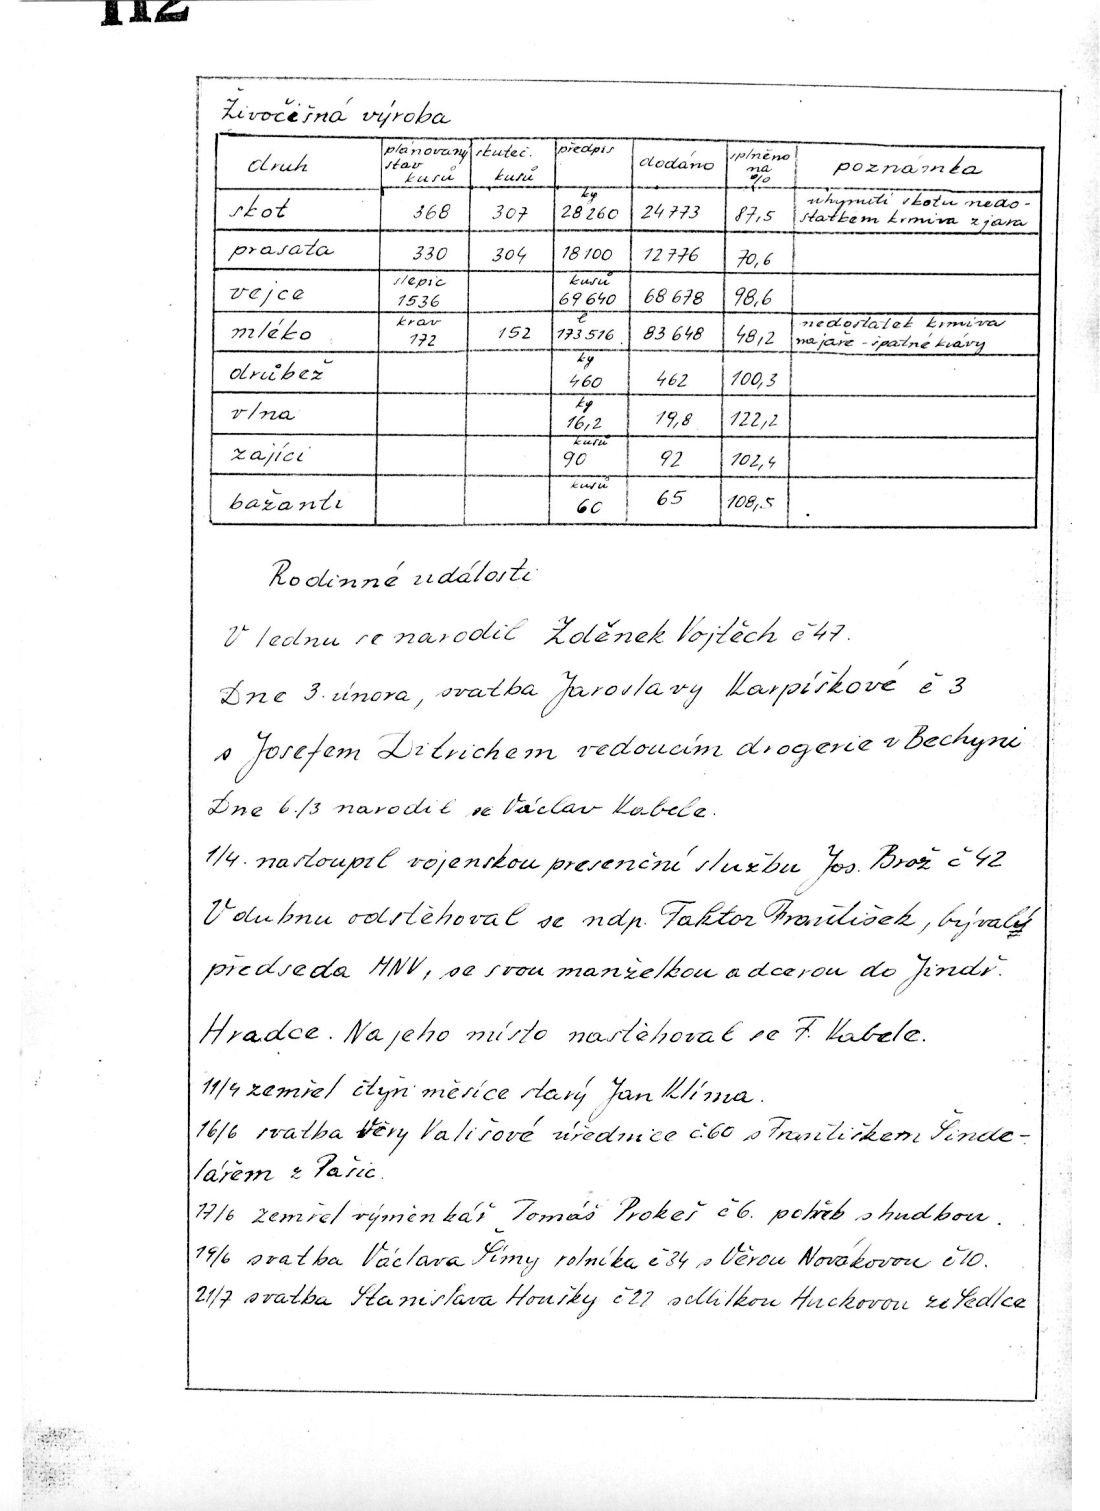 112
Živočišná výroba
druh plánovaný stav kusů skuteč. kusů předpis dodáno splněno na % poznámka
skot 368 307 kg 28260 24773 87,5 uhynutí skotu nedo-
statkem krmiva z jara
prasata 330 304 18100 12776 70,6
vejce slepic 1536 kusů 69640 68678 98,6
mléko krav 172 152 l 173516 83648 48,2 nedostatek krmiva
na jaře - špatné krávy
drůbež kg 460 462 100,3
vlna kg 16,2 19,8 122,2
zajíci kusů 90 92 102,4
bažanti kusů 60 65 108,5
Rodinné události
V lednu se narodil Zděnek Vojtěch č 47.
Dne 3. února, svatba Jaroslavy Karpíškové č 3
s Josefem Ditrichem vedoucím drogerie v Bechyni
Dne 6./3 narodil se Václav Kabele.
1/4. nastoupil vojenskou presenční službu Jos. Brož č 42
V dubnu odstěhoval se ndp. Faktor František, bývalý
předseda MNV, se svou manželkou a dcerou do Jindř.
Hradce. Na jeho místo nastěhoval se F. Kabele.
11/4 zemřel čtyři měsíce starý Jan Klíma.
16/6 svatba Věry Vališové úřednice č.60 s Františkem Šinde-
lářem z Pašic.
17/6 zemřel výměnkář Tomáš Prokeš č 6. pohřeb s hudbou.
19/6 svatba Václava Šímy rolníka č 34 s Věrou Novákovou č 10.
21/7 svatba Stanislava Houšky č 27 s Milkou Huckovou ze Sedlce